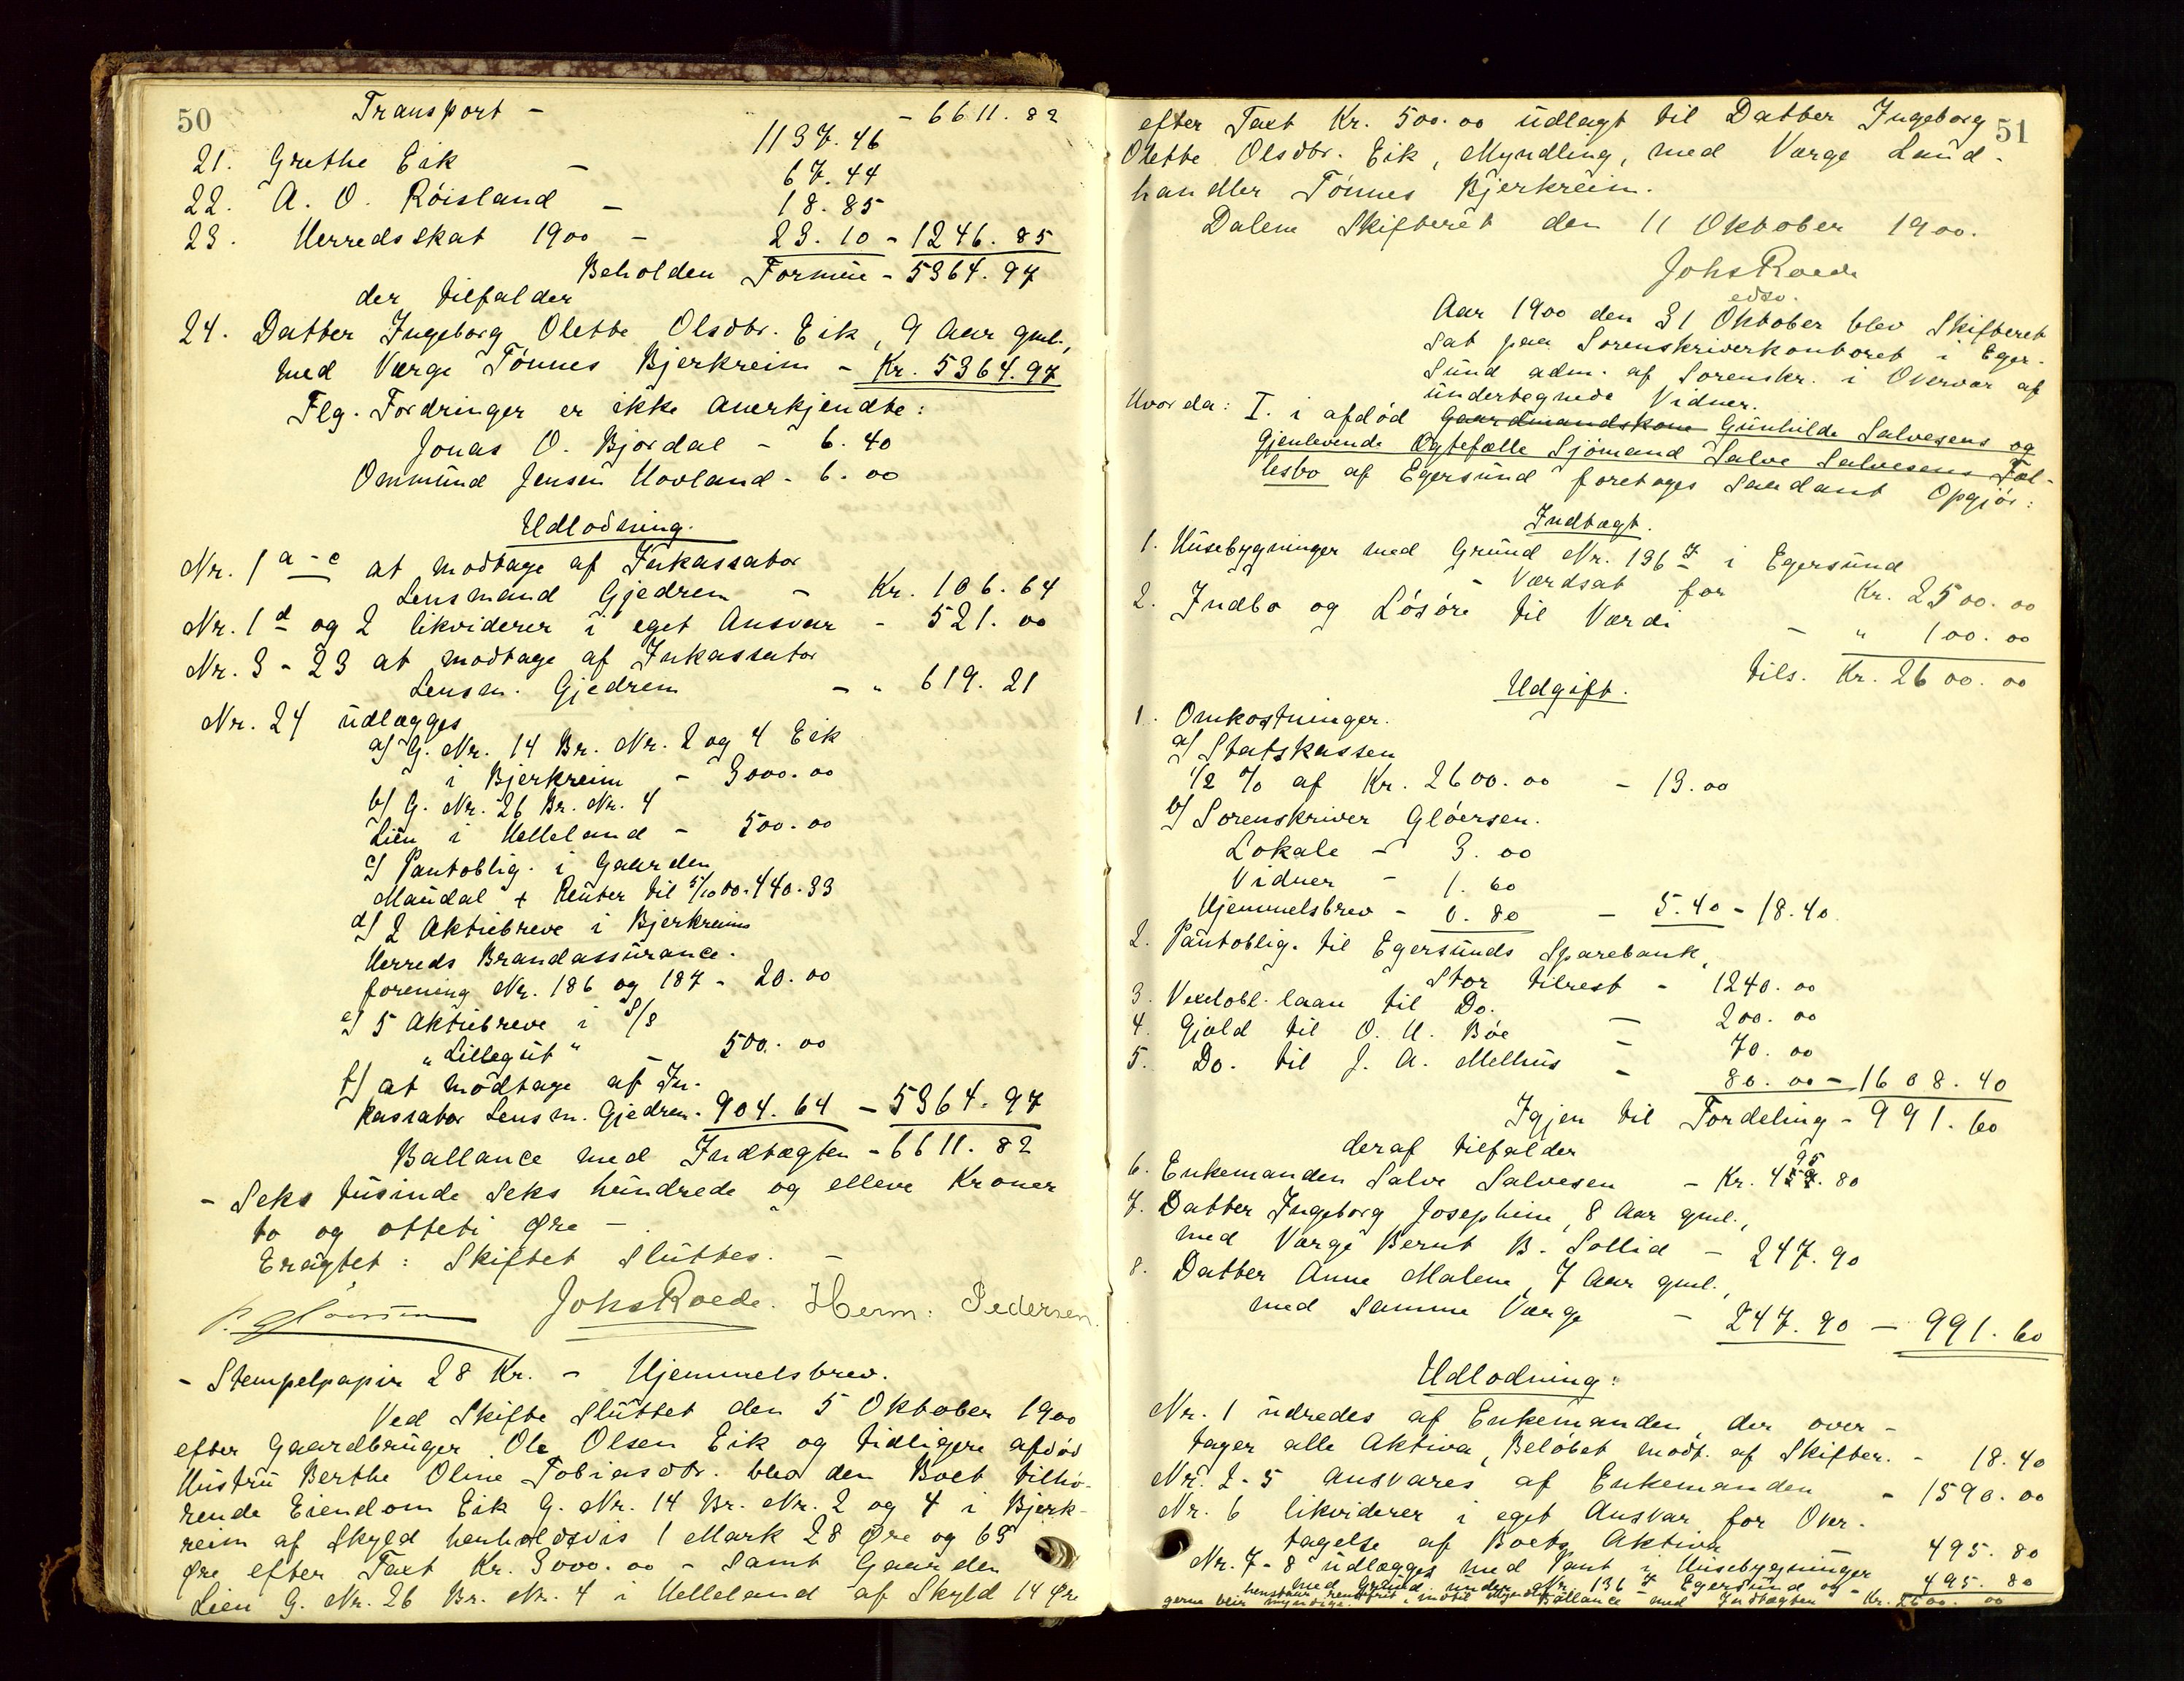 50
Transport - - 6611.82
1137.46
21. Grethe Eik - 67.44
22. A. O. Röisland - 18.85
23. Herredsskat 1900 - 23.10 - 1246.85
Beholden Formue - 5364.97
der tilfalder
24. Datter Ingeborg Olette Olsdtr. Eik, 9 Aar gml.,
med Værge Tönnes Bjerkreim - Kr. 5364.97
Flg. Fordringer er ikke anerkjendte:
Jonas O. Bjordal - 6.40
Ommund Jensen Hovland - 6.00
Udlodning.
Nr. 1 a - c at modtage af Inkassator
Lensmand Gjedrem - Kr. 106.64
Nr. 1 d og 2 likviderer i eget Ansvar - 521.00
Nr. 3 - 23 at modtage af Inkassator
Lensm. Gjedrem - " 619.21
Nr. 24 udlægges
a) G. Nr. 14 Br. Nr. 2 og 4 Eik
i Bjerkreim - 3000.00
b) G. Nr. 26 Br. Nr. 4
Lien i Helleland - 500.00
c) Pantoblig. i Gaarden
Maudal + Renter til 5/10 00 - 440.33
d) 2 Aktiebreve i Bjerkreims
Herreds Brandassurance-
forening Nr. 186 og 187 - 20.00
e) 5 Aktiebreve i S/S
"Lillegut" - 500.00
f) at modtage af In-
kassator Lensm. Gjedrem - 904.64 - 5364.97
Ballance med Indtægten - 6611.82
- Seks tusinde seks hundrede og elleve Kroner
to og otteti Øre -
Eragtet: Skiftet sluttes. -
JohsRoede. Herm: Pedersen.
- Stempelpapir 28 Kr. - Hjemmelsbrev.
Ved Skifte sluttet den 5 Oktober 1900
efter Gaardbruger Ole Olsen Eik og tidligere afdöd
Hustru Berthe Oline Tobiasdtr. blev den Boet tilhö-
rende Eiendom Eik G. Nr. 14 Br. Nr. 2 og 4 i Bjerk-
reim af Skyld henholdsvis 1 Mark 28 Øre og 65
Øre efter Taxt Kr. 3000.00 - samt Gaarden
Lien G. Nr. 26 Br. Nr. 4 i Helleland af Skyld 14 Øre
51
efter Taxt Kr. 500.00 udlagt til Datter Ingeborg
Olette Olsdtr. Eik, Myndling, med Værge Land-
handler Tönnes Bjerkreim.
Dalene Skifteret den 11 Oktober 1900.
JohsRoede
edsv.
Aar 1900 den 31 Oktober blev Skifteret
sat paa Sorenskriverkontoret i Eger-
sund adm. af Sorenskr. i Overvær af
undertegnede Vidner.
Hvorda: I. i afdöd Gaardmandskone Gunhilde Salvesens og
Gjenlevende Ægtefælle Sjömand Salve Salvesens Fæl-
lesbo af Egersund foretoges saadant Opgjör:
Indtægt.
1. Husebygninger med Grund Nr. 136 7 i Egersund
- Værdsat for Kr. 2500.00
2. Indbo og Lösöre til Værdi - " 100.00
tils. Kr. 2600.00
Udgift.
1. Omkostninger.
a) Statskassen
1/2 % af Kr. 2600.00 - 13.00
b) Sorenskriver Glöersen.
Lokale - 3.00
Vidner - 1.60
Hjemmelsbrev - 0.80 - 5.40 - 18.40
2. Pantoblig. til Egersunds Sparebank,
stor tilrest - 1240.00
3. Vexelobl. laan til Do. - 200.00
4. Gjæld til O. H. Böe - 70.00
5. Do. til J. A. Melhus - 80.00 - 1608.40
Igjen til Fordeling - 991.60
deraf tilfalder
6. Enkemanden Salve Salvesen - Kr. 495.80
7. Datter Ingeborg Josephine, 8 Aar gml.,
med Værge Bernt B. Sollid - 247.90
8. Datter Anne Malene, 7 Aar gml.,
med samme Værge - 247.90 - 991.60
Udlodning:
Nr. 1 udredes af Enkemanden, der over-
tager alle Aktiva, Belöbet modt. af Skifter. - 18.40
Nr. 2-5 ansvares af Enkemanden - 1590.00
Nr. 6 likviderer i eget Ansvar for Over-
tagelse af Boets Aktiva 495.80
Nr. 7-8 udlægges med Pant i Husebygninger
med Grund under Nr. 136 7 Egersund og - 495.80
henstaar rentefrit indtil Myndlin-
gerne blir myndige. Ballance med Indtægten Kr. 2600.00